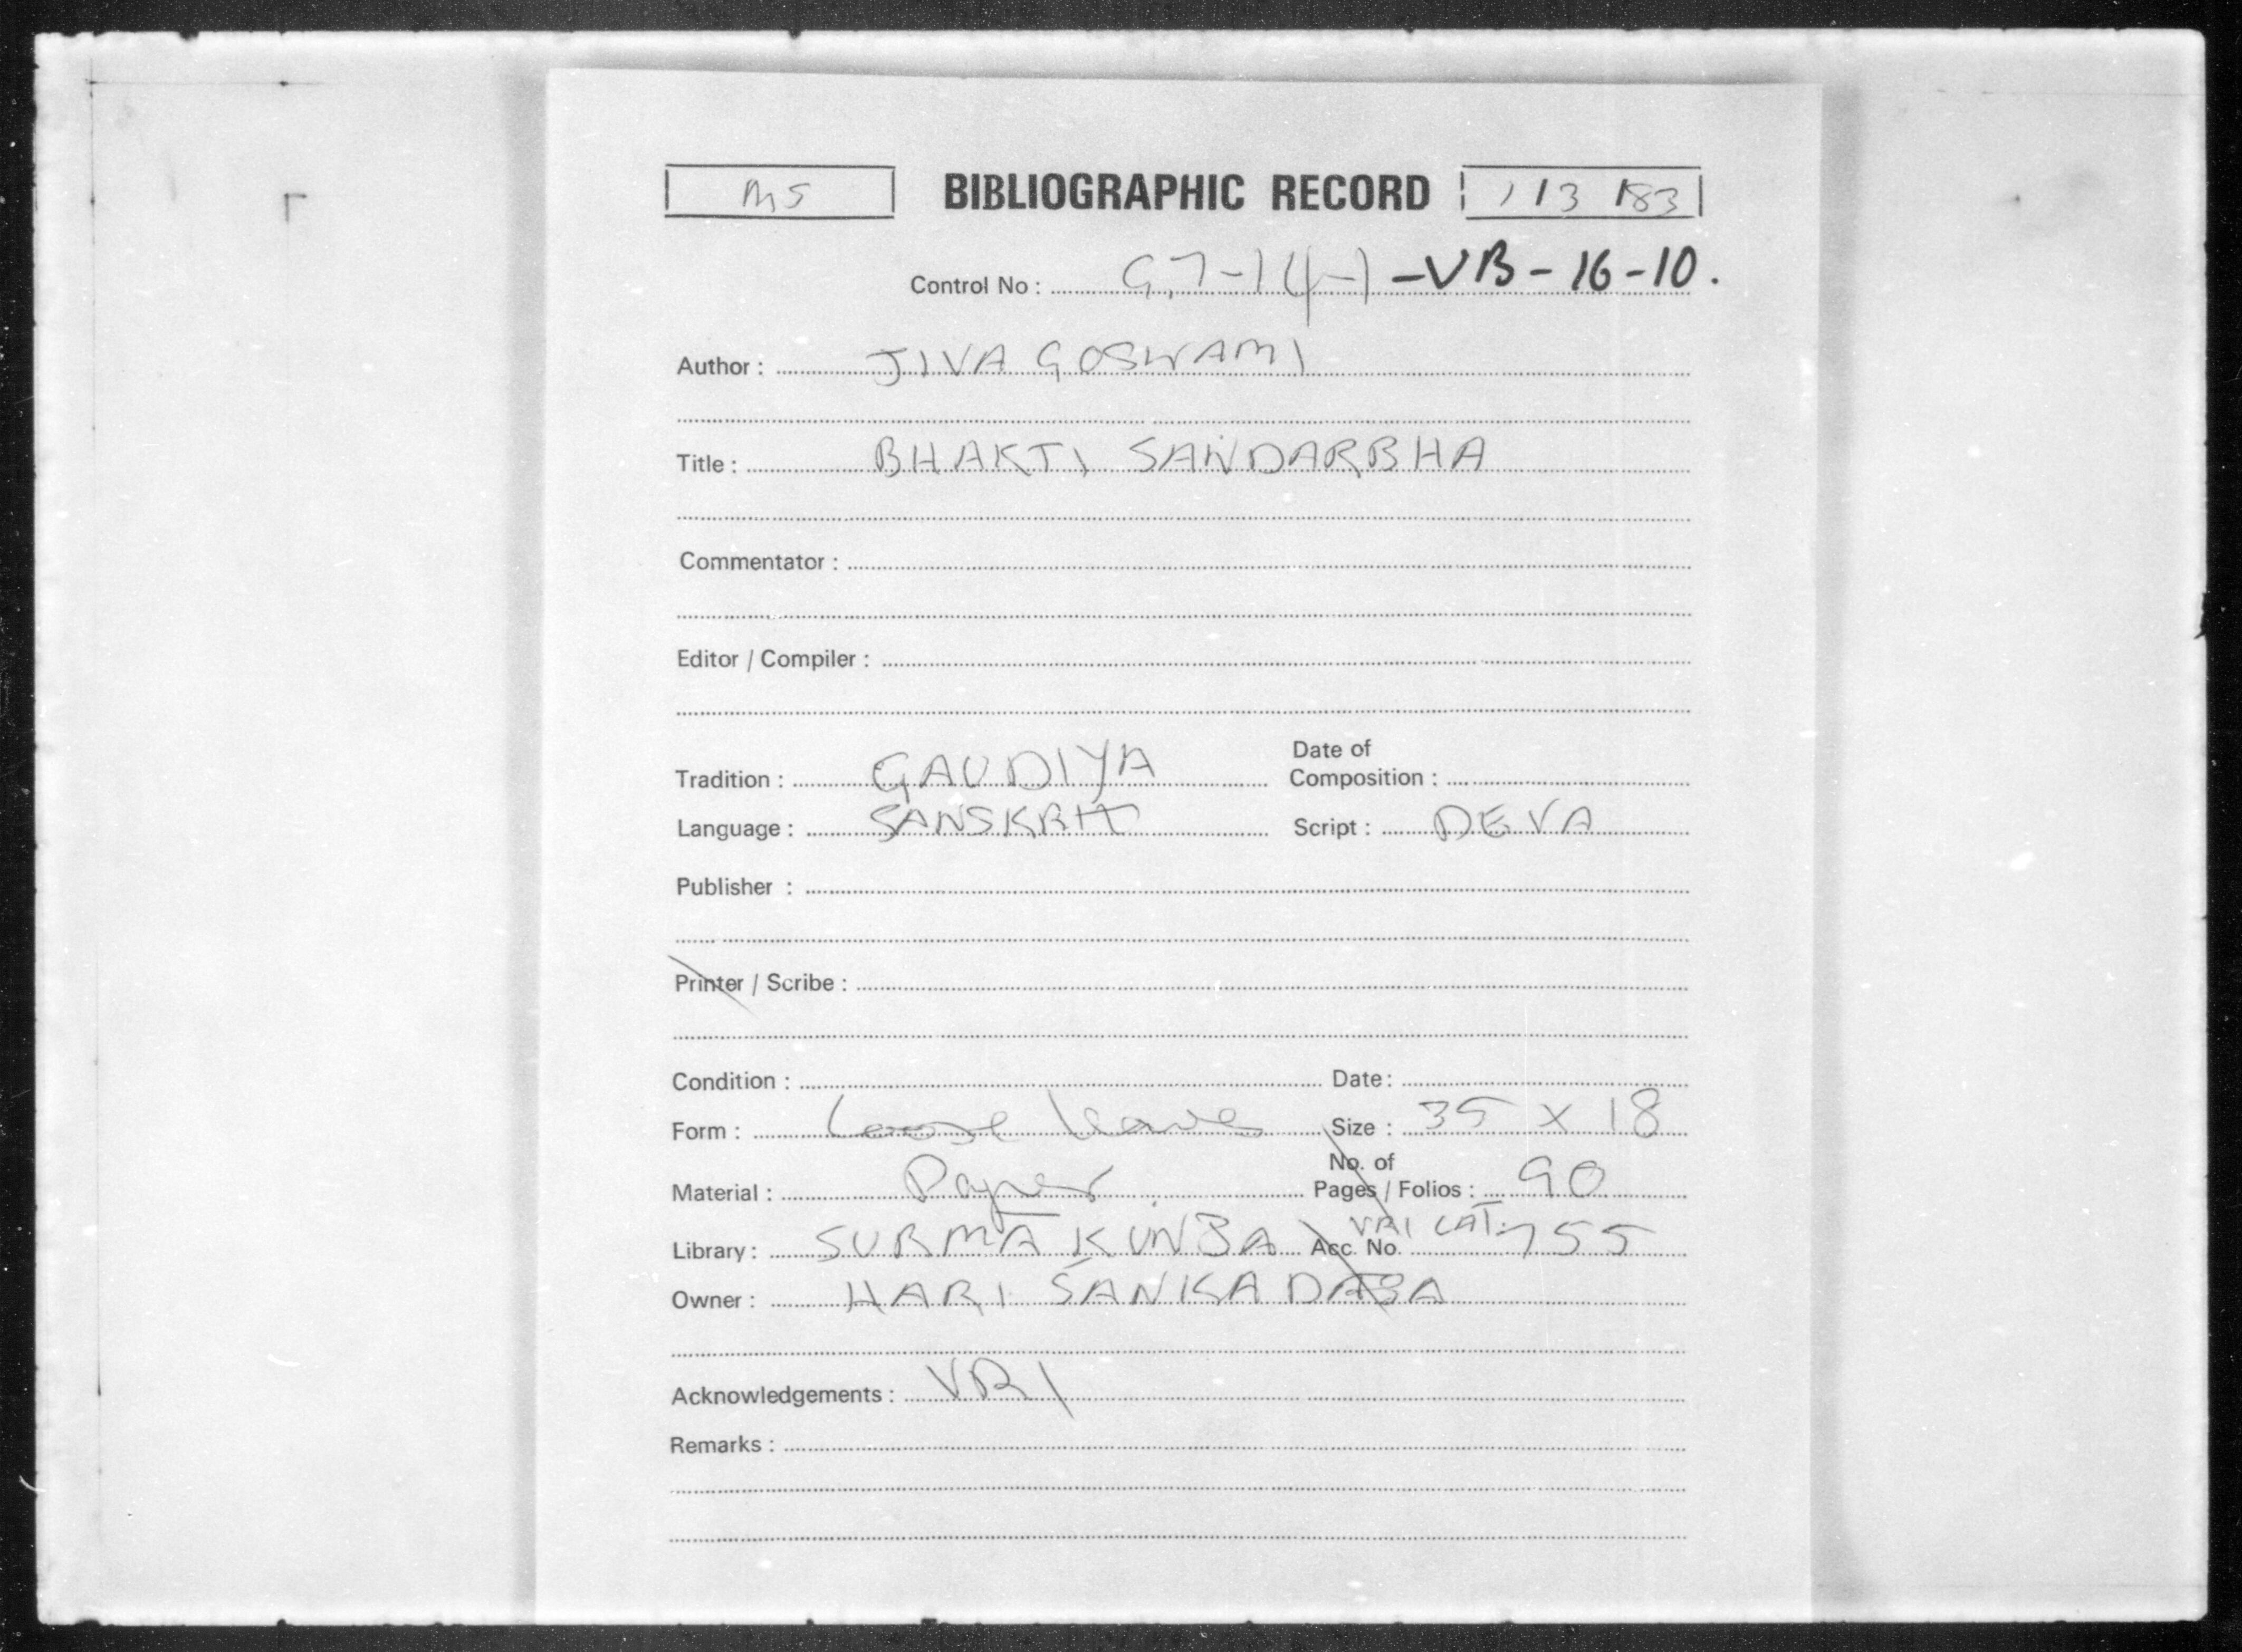 MS BIBLIOGRAPHIC RECORD 1 / 3 / 83
Control No : G.7-14-1 -VB - 16 -10.
Author : JIVA GOSWAMI
Title : BHAKTI SANDARBHA
Commentator :
Editor / Compiler :
Tradition : GAUDIYA Date of Composition :
Language : SANSKRIT Script : DEVA
Publisher :
Printer / Scribe :
Condition : Date :
Form : Loose leaves Size : 35 X 18
Material : Paper No. of Pages / Folios : 90
Library : SURMA KUNJA Acc. No. VRI CAT: 755
Owner : HARI SANKA DASA
Acknowledgements : VRI
Remarks :